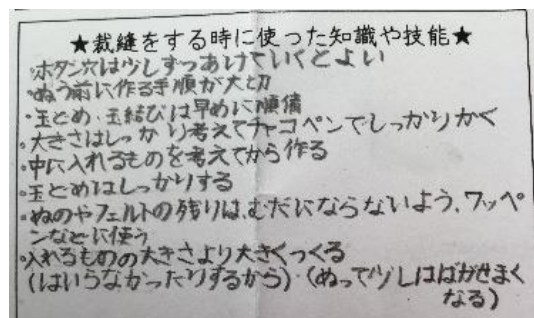 ★裁縫をする時に使った知識や技能★
・ボタン穴は少しずつあけていくとよい
・ぬう前に作る手順が大切
・玉どめ、玉結びは早めに順備
・大きさはしっかり考えてチャコペンでしっかりかく
・中に入れるものを考えてから作る
・玉どめはしっかりする
・ぬのやフェルトの残りは、むだにならないよう、ワッペ
ンなどに使う
・入れるものの大きさより大きくつくる
(はいらなかったりするから)・(ぬって少しははばがせまく
なる)